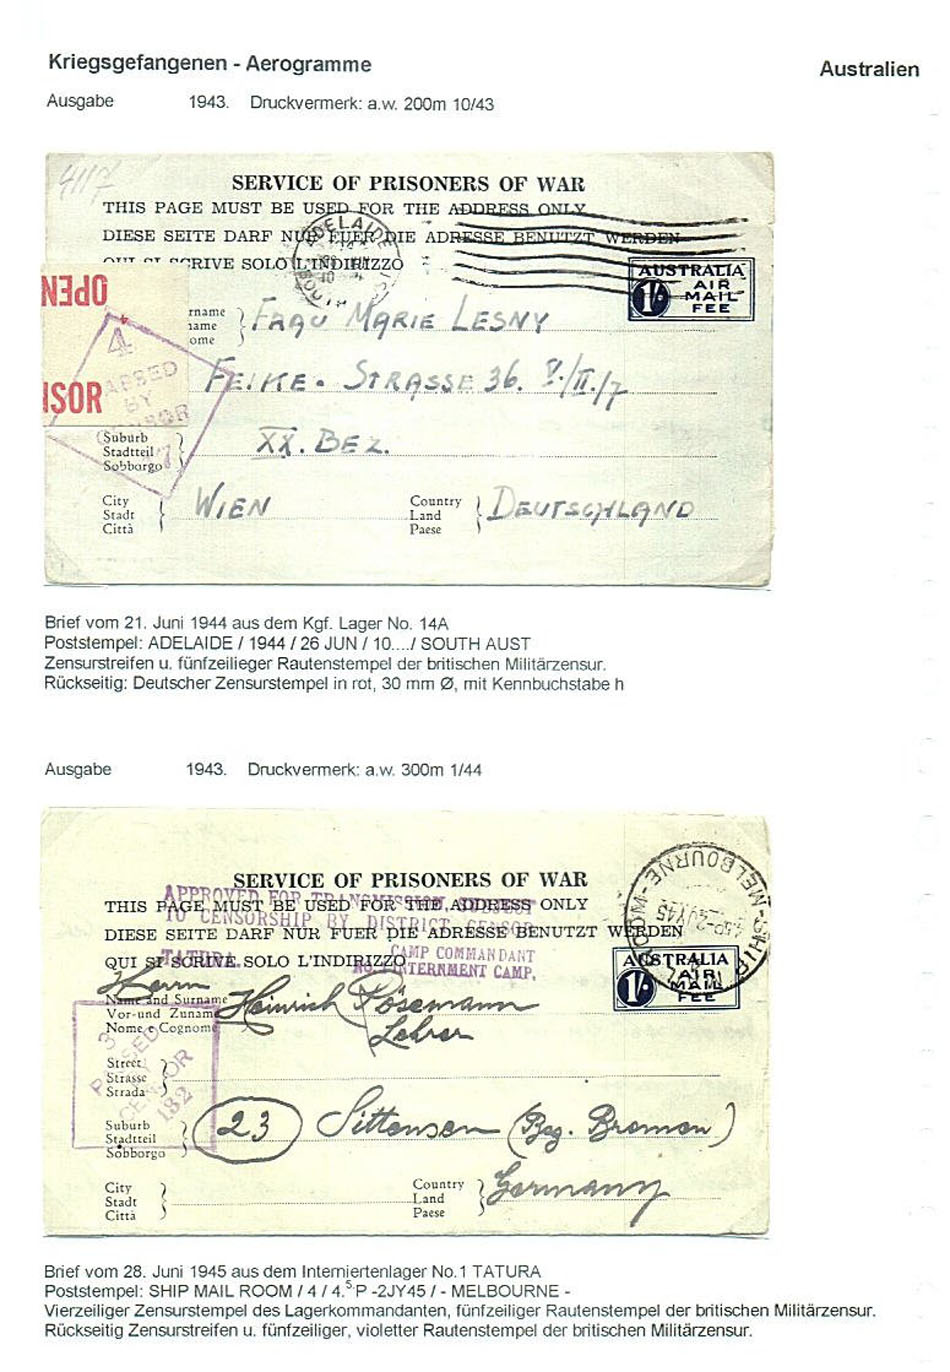 Kriegsgefangenen - Aerogramme
Australien
Ausgabe 1943. Druckvermerk: a.w. 200m 10/43
4117
SERVICE OF PRISONERS OF WAR
THIS PAGE MUST BE USED FOR THE ADDRESS ONLY
DIESE SEITE DARF NUR FUER DIE ADRESSE BENUTZT WERDEN
QUI SI SCRIVE SOLO L'INDIRIZZO
ADELAIDE
SOUTH
AUSTRALIA
1/- AIR
MAIL
FEE
OPEN
4
PASSED
BY
CENSOR
ISOR
rname
name
ome
FRAU MARIE LESNY
FEIKE. STRASSE 36. V./II./7
Suburb
Stadtteil
Sobborgo
XX. BEZ.
City
Stadt
Città
WIEN
Country
Land
Paese
DEUTSCHLAND
Brief vom 21. Juni 1944 aus dem Kgf. Lager No. 14A
Poststempel: ADELAIDE / 1944 / 26 JUN / 10..../ SOUTH AUST
Zensurstreifen u. fünfzeilieger Rautenstempel der britischen Militärzensur.
Rückseitig: Deutscher Zensurstempel in rot, 30 mm Ø, mit Kennbuchstabe h
Ausgabe 1943. Druckvermerk: a.w. 300m 1/44
SERVICE OF PRISONERS OF WAR
APPROVED FOR TRANSMISSION SUBJECT
THIS PAGE MUST BE USED FOR THE ADDRESS ONLY
TO CENSORSHIP BY DISTRICT CENSOR
DIESE SEITE DARF NUR FUER DIE ADRESSE BENUTZT WERDEN
CAMP COMMANDANT
TATURA.
QUI SI SCRIVE SOLO L'INDIRIZZO
NO. 1 INTERNMENT CAMP.
SHIP MAIL ROOM - MELBOURNE -
4.5P-2JY45
AUSTRALIA
1/- AIR
MAIL
FEE
Herrn
Name and Surname
Vor-und Zuname
Nome e Cognome
Heinrich Rösemann
Lehrer
3
PASSED
CENSOR
132
Street
Strasse
Strada
Suburb
Stadtteil
Sobborgo
23 Sittensen (Bez. Bremen)
City
Stadt
Città
Country
Land
Paese
Germany
Brief vom 28. Juni 1945 aus dem Interniertenlager No.1 TATURA
Poststempel: SHIP MAIL ROOM / 4 / 4.5 P -2JY45 / - MELBOURNE -
Vierzeiliger Zensurstempel des Lagerkommandanten, fünfzeiliger Rautenstempel der britischen Militärzensur.
Rückseitig Zensurstreifen u. fünfzeiliger, violetter Rautenstempel der britischen Militärzensur.